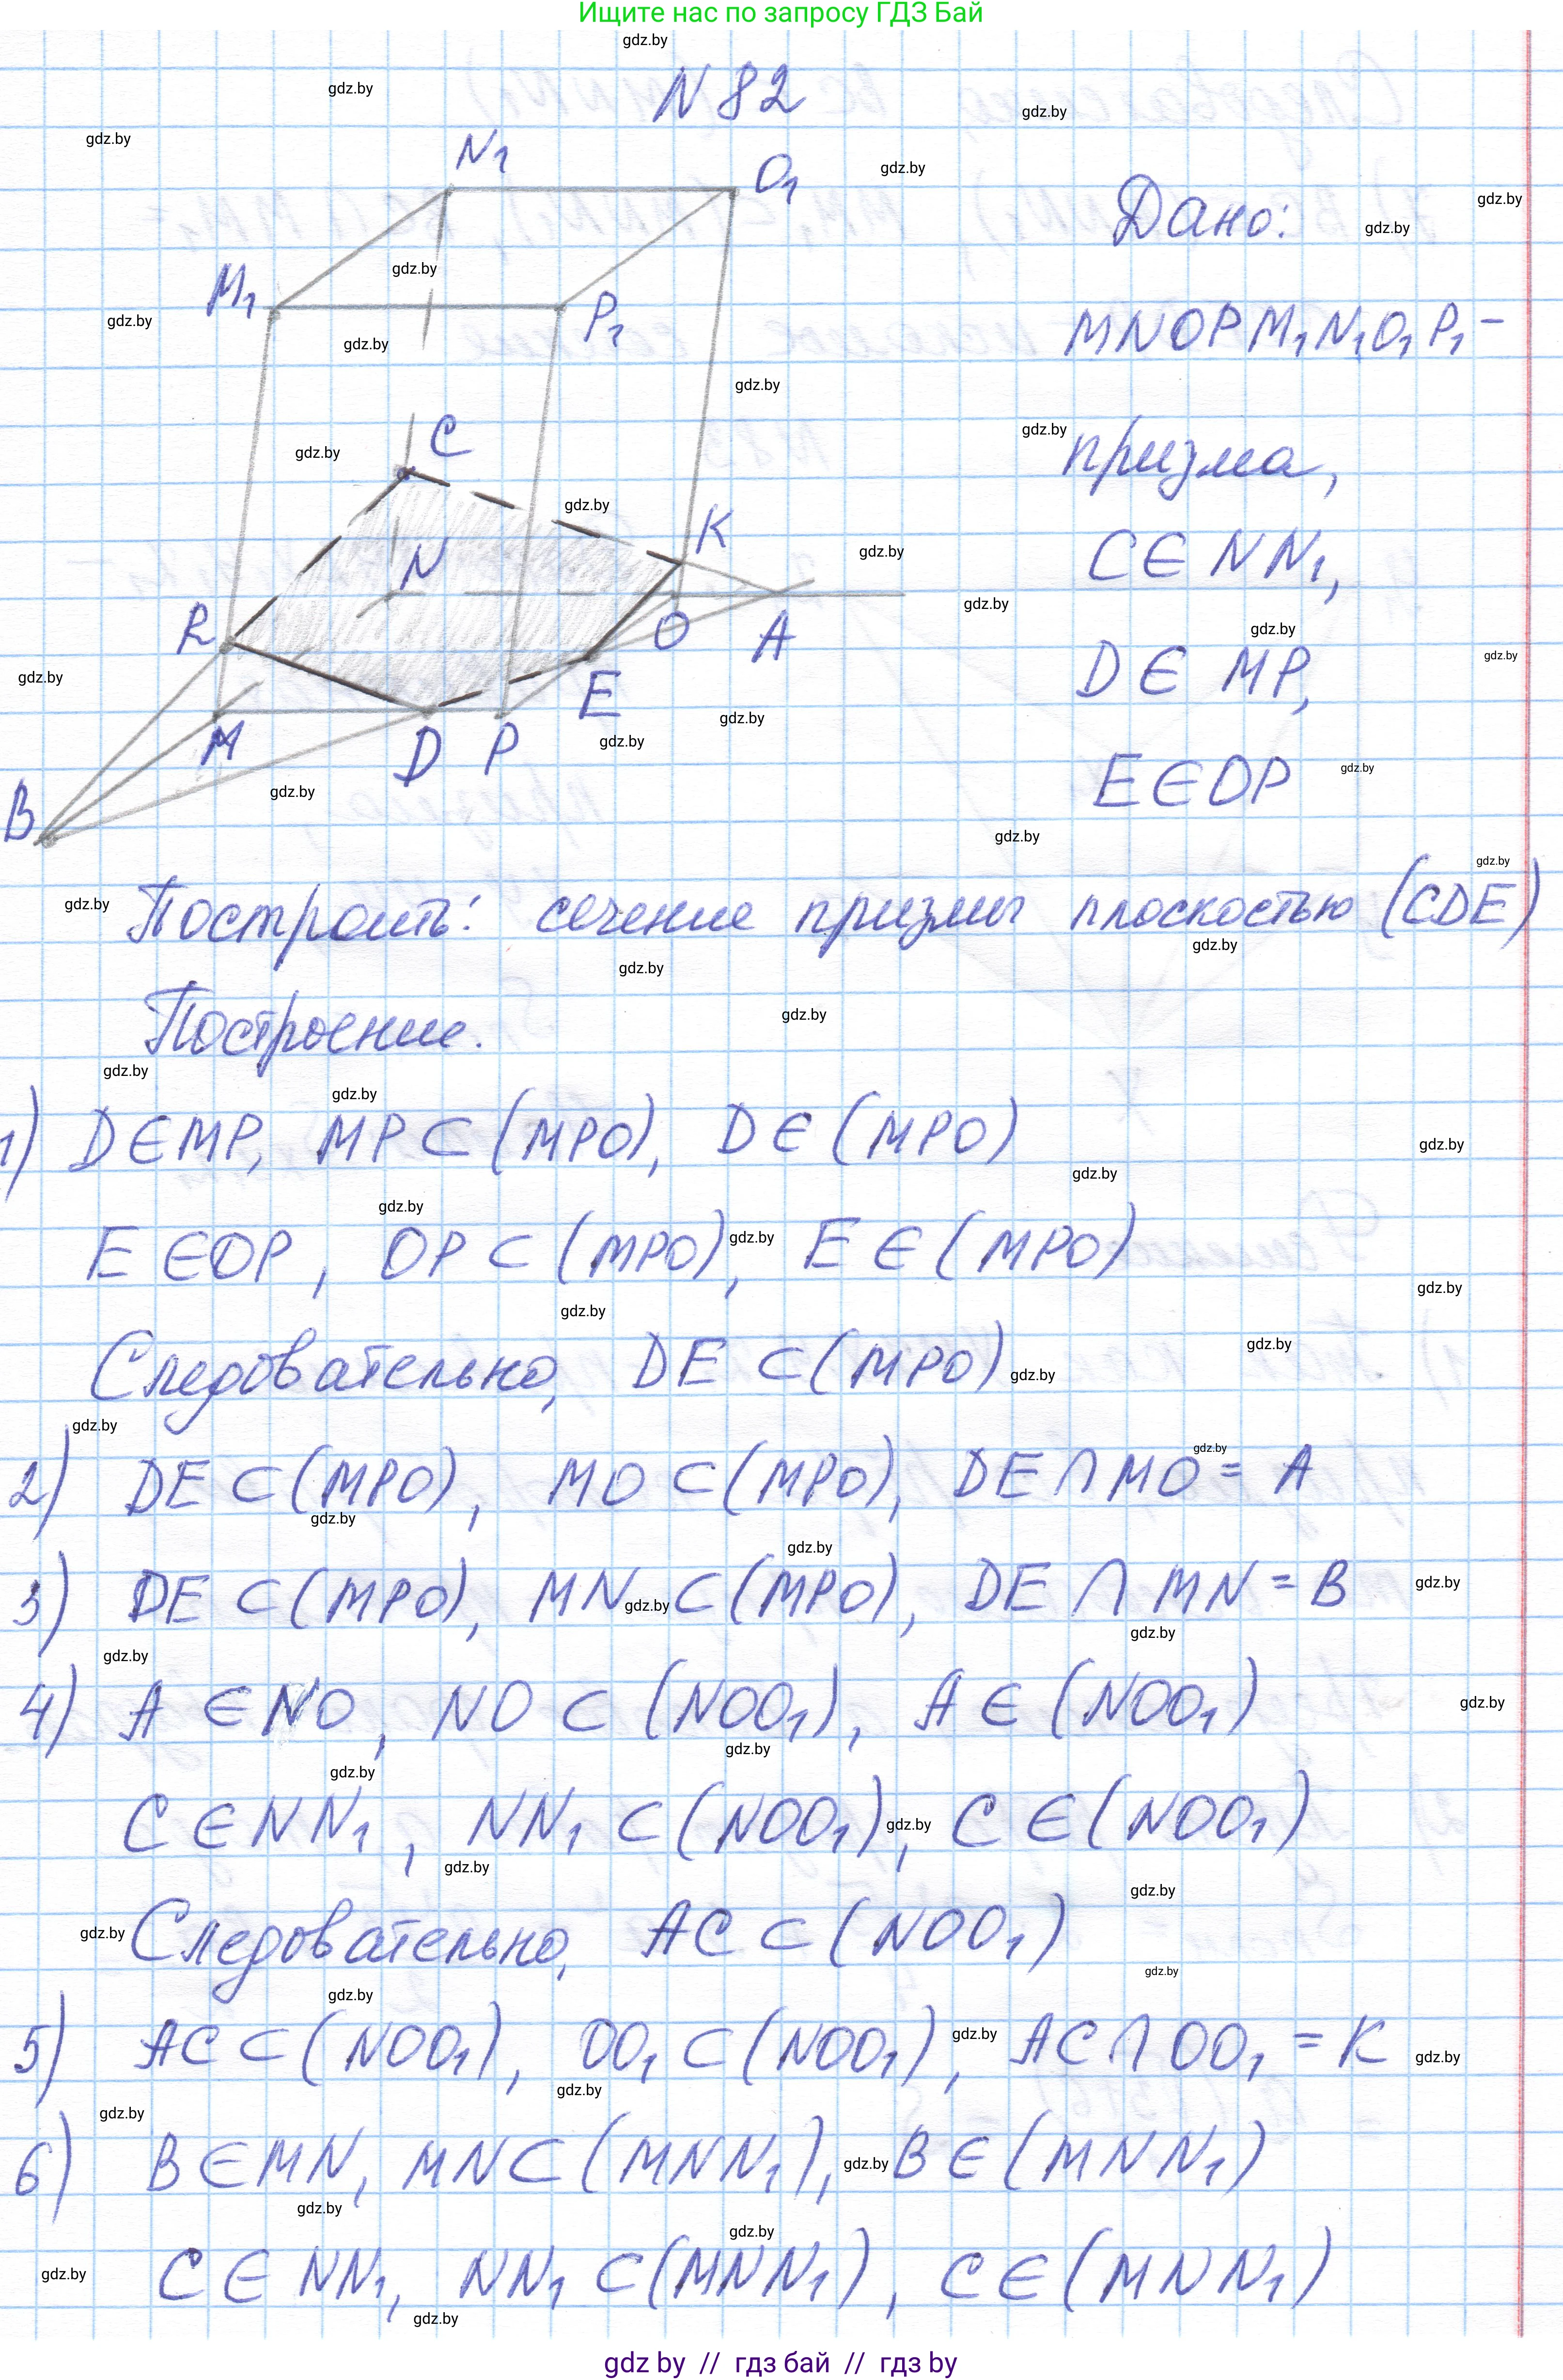 Ищите нас по запросу ГДЗ Бай
N 82
N₁
O₁
M₁
P₁
C
K
N
R
O
A
E
M
D
P
B
Дано:
MNOPM₁N₁O₁P₁ –
призма,
C ∈ NN₁,
D ∈ MP,
E ∈ OP
Построить: сечение призмы плоскостью (CDE)
Построение.
1) D ∈ MP, MP ⊂ (MPO), D ∈ (MPO)
E ∈ OP, OP ⊂ (MPO), E ∈ (MPO)
Следовательно, DE ⊂ (MPO)
2) DE ⊂ (MPO), MO ⊂ (MPO), DE ∩ MO = A
3) DE ⊂ (MPO), MN ⊂ (MPO), DE ∩ MN = B
4) A ∈ NO, NO ⊂ (NOO₁), A ∈ (NOO₁)
C ∈ NN₁, NN₁ ⊂ (NOO₁), C ∈ (NOO₁)
Следовательно, AC ⊂ (NOO₁)
5) AC ⊂ (NOO₁), OO₁ ⊂ (NOO₁), AC ∩ OO₁ = K
6) B ∈ MN, MN ⊂ (MNN₁), B ∈ (MNN₁)
C ∈ NN₁, NN₁ ⊂ (MNN₁), C ∈ (MNN₁)
gdz by // гдз бай // гдз by